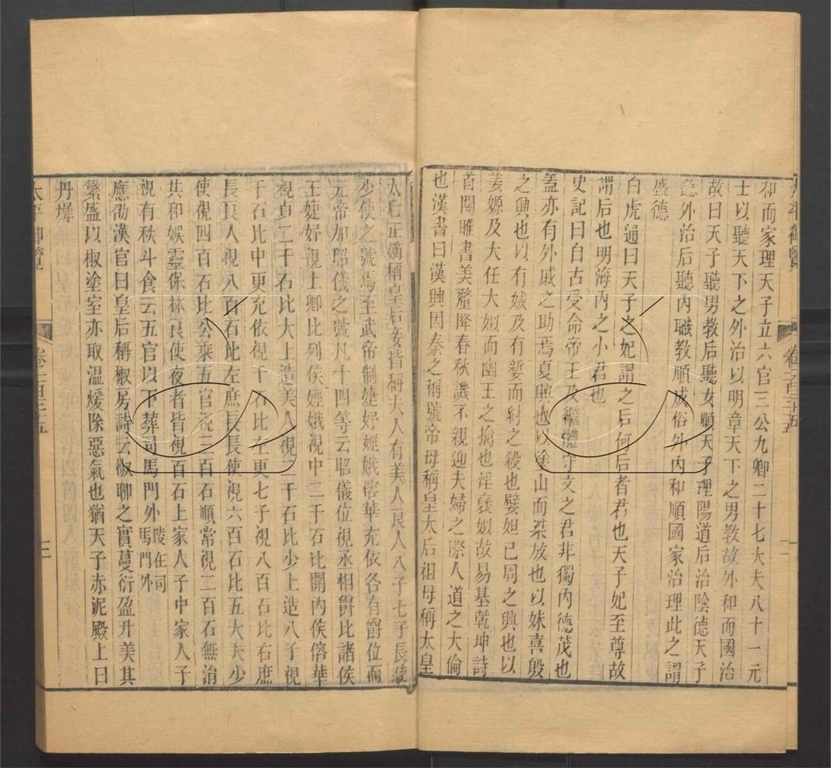 太平御覽
卷一百三十五
和而家理天子立六官三公九卿二十七大夫八十一元
士以聽天下之外治以明章天下之男教故外和而國治
故曰天子聽男教后聽女順天子理陽道后治陰德天子
聽外治后聽內職教順成俗外內和順國家治理此之謂
盛德
白虎通曰天子之妃謂之后何后者君也天子妃至尊故
謂后也明海內之小君也
史記曰自古受命帝王及繼體守文之君非獨內德茂也
蓋亦有外戚之助焉夏興也以塗山而桀放也以妹喜殷
之興也以有娀及有㜪而紂之殺也嬖妲己周之興也以
姜嫄及大任大姒而幽王之擒也淫褒姒故易基乾坤詩
首關雎書美釐降春秋譏不親迎夫婦之際人道之大倫
也漢書曰漢興因秦之稱號帝母稱皇太后祖母稱太皇
太后正嫡稱皇后妾皆稱夫人有美人良人八子七子長使
少使之號焉至武帝制婕妤娙娥傛華充依各有爵位而
元帝加昭儀之號凡十四等云昭儀位視丞相爵比諸侯
王婕妤視上卿比列侯娙娥視中二千石比關內侯傛華
視真二千石比大上造美人視二千石比少上造八子視
千石比中更充依視千石比左更七子視八百石比右庶
長良人視八百石比左庶長長使視六百石比五大夫少
使視四百石比公乘五官視三百石順常視二百石無涓
共和娛靈保林良使夜者皆視百石上家人子中家人子
視有秩斗食云五官以下葬司馬門外陵在司馬門外
應劭漢官曰皇后稱椒房詩云椒聊之實蔓衍盈升美其
繁盛以椒塗室亦取溫煖除惡氣也猶天子赤泥殿上曰
丹墀
太平御覽
卷一百三十五
三